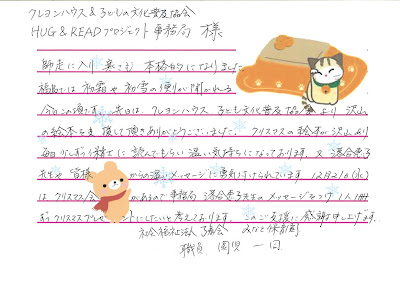 クレヨンハウス＆子どもの文化普及協会
HUG＆READプロジェクト事務局 様
師走に入り寒さも本格的になりました
福島では初霜や初雪の便りが聞かれる
今日この頃です。先日は、クレヨンハウス 子ども文化普及協会より沢山
の絵本を頂き ありがとうございました。クリスマスの絵本が沢山あり
毎日 に読んでもらい温い気持ちになっております。又 落合恵子
先生や皆様からの温いメッセージに勇気づけられています。12月21日(水)
はクリスマス会があるので事務局 落合恵子先生のメッセージをつけ1人1冊
ずつクリスマスプレゼントにしたいと考えております。 のご支援に感謝申し上げます。
社会福祉法人 協会 みなと保育園
職員 園児 一同